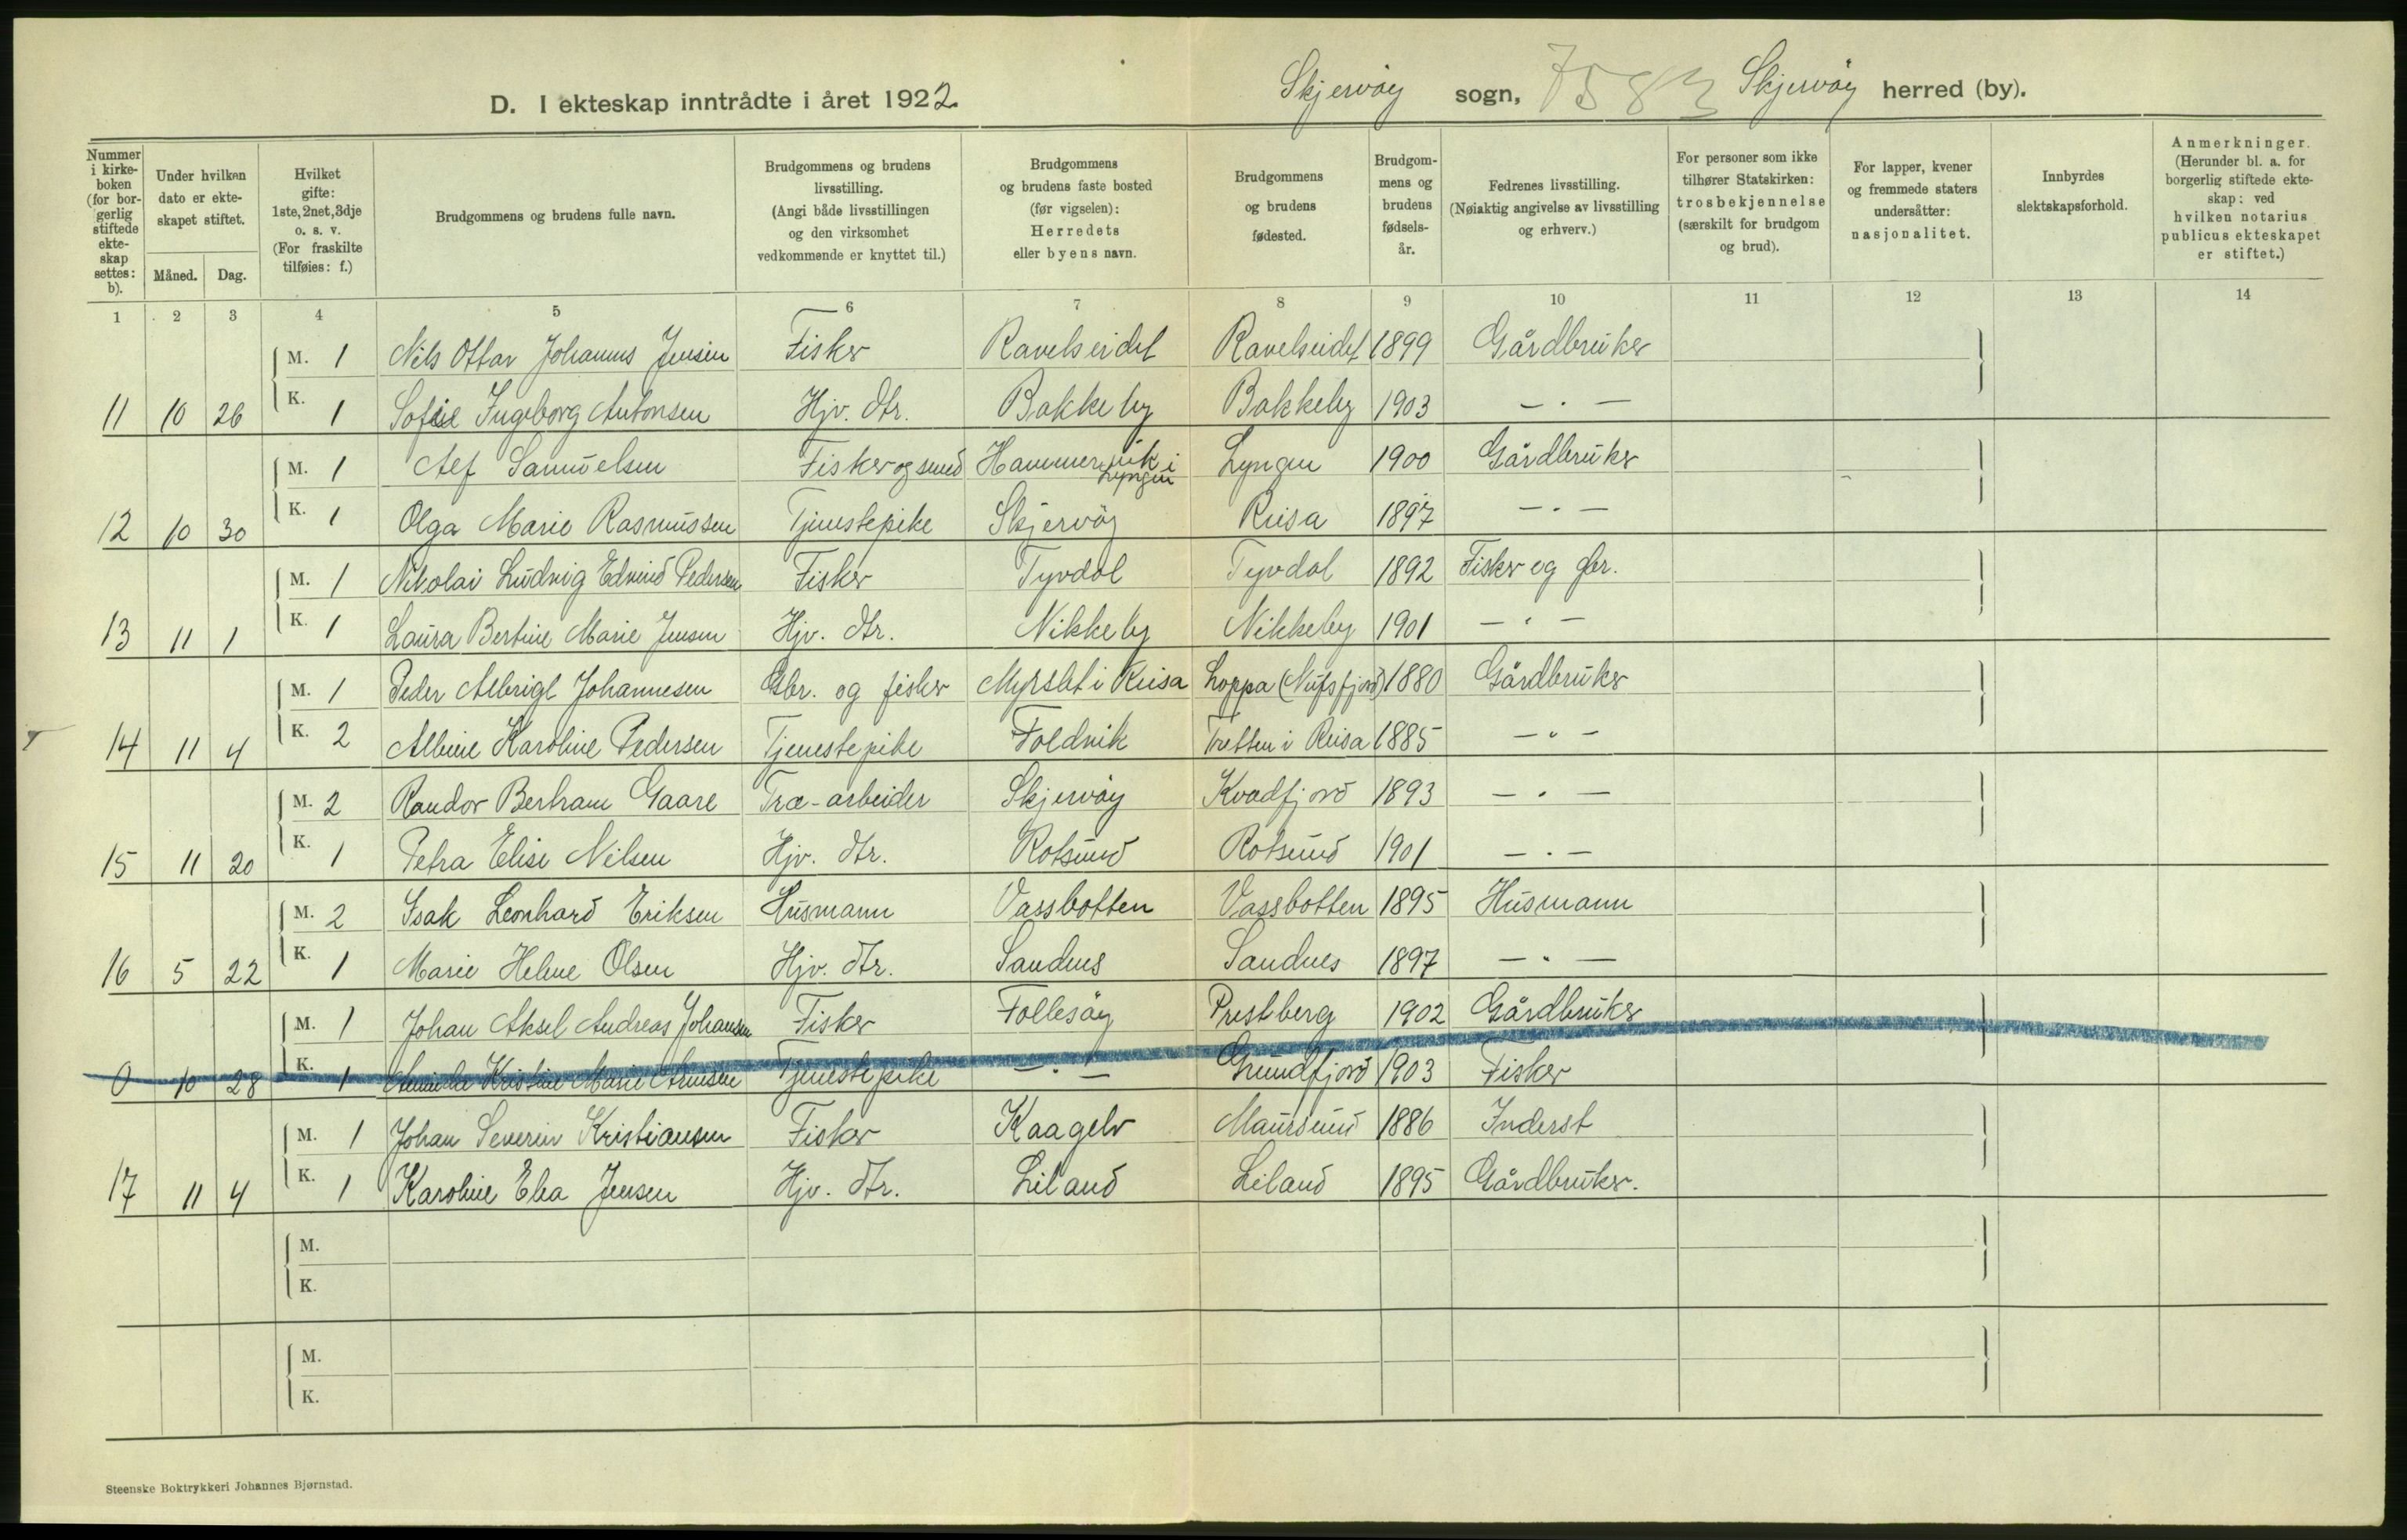 D. I ekteskap inntrådte i året 1922 Skjervøy sogn, 7583 Skjervøy herred (by).
Nummer i kirkeboken (for borgerlig stiftede ekteskap settes: b).
Under hvilken dato er ekteskapet stiftet.
Måned. Dag.
Hvilket gifte: 1ste, 2net, 3dje o. s. v. (For fraskilte tilføies: f.)
Brudgommens og brudens fulle navn.
Brudgommens og brudens livsstilling. (Angi både livsstillingen og den virksomhet vedkommende er knyttet til.)
Brudgommens og brudens faste bosted (før vigselen): Herredets eller byens navn.
Brudgommens og brudens fødested.
Brudgommens og brudens fødselsår.
Fedrenes livsstilling. (Nøiaktig angivelse av livsstilling og erhverv.)
For personer som ikke tilhører Statskirken: trosbekjennelse (særskilt for brudgom og brud).
For lapper, kvener og fremmede staters undersåtter: nasjonalitet.
Innbyrdes slektskapsforhold.
Anmerkninger. (Herunder bl. a. for borgerlig stiftede ekteskap: ved hvilken notarius publicus ekteskapet er stiftet.)
1 2 3 4 5 6 7 8 9 10 11 12 13 14
M. 1 Nils Ottar Johannes Jensen Fisker Ravelseidet Ravelseidet 1899 Gårdbruker
11 10 26 K. 1 Sofie Ingeborg Antonsen Hjv. dtr. Bakkeby Bakkeby 1903 — " —
M. 1 Alf Samuelsen Fisker og smed Hammervik i Lyngen Lyngen 1900 Gårdbruker
12 10 30 K. 1 Olga Marie Rasmussen Tjenestepike Skjervøy Reisa 1897 — " —
M. 1 Nikolai Ludvig Edvind Pedersen Fisker Tyvdal Tyvdal 1892 Fisker og gbr.
13 11 1 K. 1 Laura Bertine Marie Jensen Hjv. dtr. Nikkeby Nikkeby 1901 — " —
M. 1 Peder Albrigt Johannesen Gbr. og fisker Myrslet i Reisa Loppa (Nufsfjord) 1880 Gårdbruker
14 11 4 K. 2 Albine Karoline Pedersen Tjenestepike Foldvik Tretten i Reisa 1885 — " —
M. 2 Randor Bertram Gaare Træ-arbeider Skjervøy Kvadfjord 1893 — " —
15 11 20 K. 1 Petra Elise Nilsen Hjv. dtr. Rotsund Rotsund 1901 — " —
M. 2 Isak Leonhard Eriksen Husmann Vassbotten Vassbotten 1895 Husmann
16 5 22 K. 1 Marie Helene Olsen Hjv. dtr. Sandnes Sandnes 1897 — " —
M. 1 Johan Aksel Andreas Johansen Fisker Follesøy Prestberg 1902 Gårdbruker
0 10 28 K. 1 Kristine Marie Tjenestepike — " — Grundfjord 1903 Fisker
M. 1 Johan Severin Kristiansen Fisker Kaagelv Maursund 1886 Inderst
17 11 4 K. 1 Karoline Elea Jensen Hjv. dtr. Liland Liland 1895 Gårdbruker.
M.
K.
M.
K.
Steenske Boktrykkeri Johannes Bjørnstad.